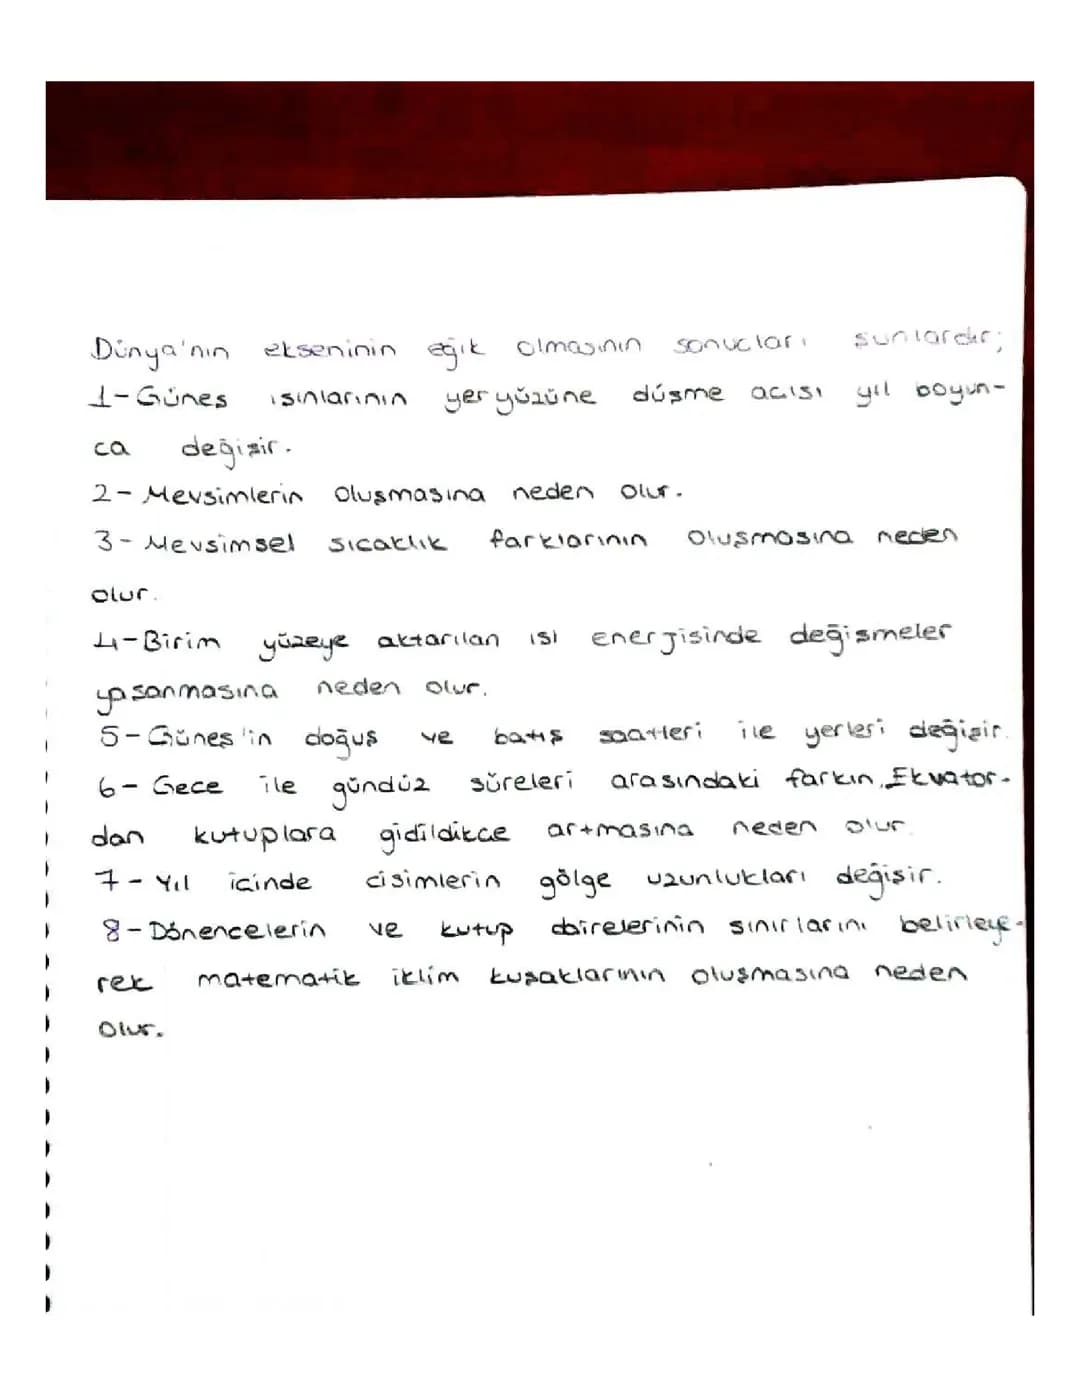 Dünya'nın ekseninin eğik olmasının sonucları şunlardır;
1-Günes ısınlarının yeryüzüne düşme acısı yıl boyun-
ca değişir.
2- Mevsimlerin oluşmasına neden olur.
3- Mevsimsel sıcaklık farklarının oluşmasına neden
olur.
4-Birim yüzeye aktarılan ısı enerjisinde değişmeler
yasanmasına neden olur.
5-Güneş'in doğuş ve batış saatleri ile yerleri değişir.
6- Gece ile gündüz süreleri arasındaki farkın, Ekvator-
dan kutuplara gidildikce artmasına neden olur.
7- Yıl icinde cisimlerin gölge uzunlukları değişir.
8-Dönencelerin ve kutup dairelerinin sınırlarını belirleye-
rek matematik iklim kuşaklarının oluşmasına neden
olur.